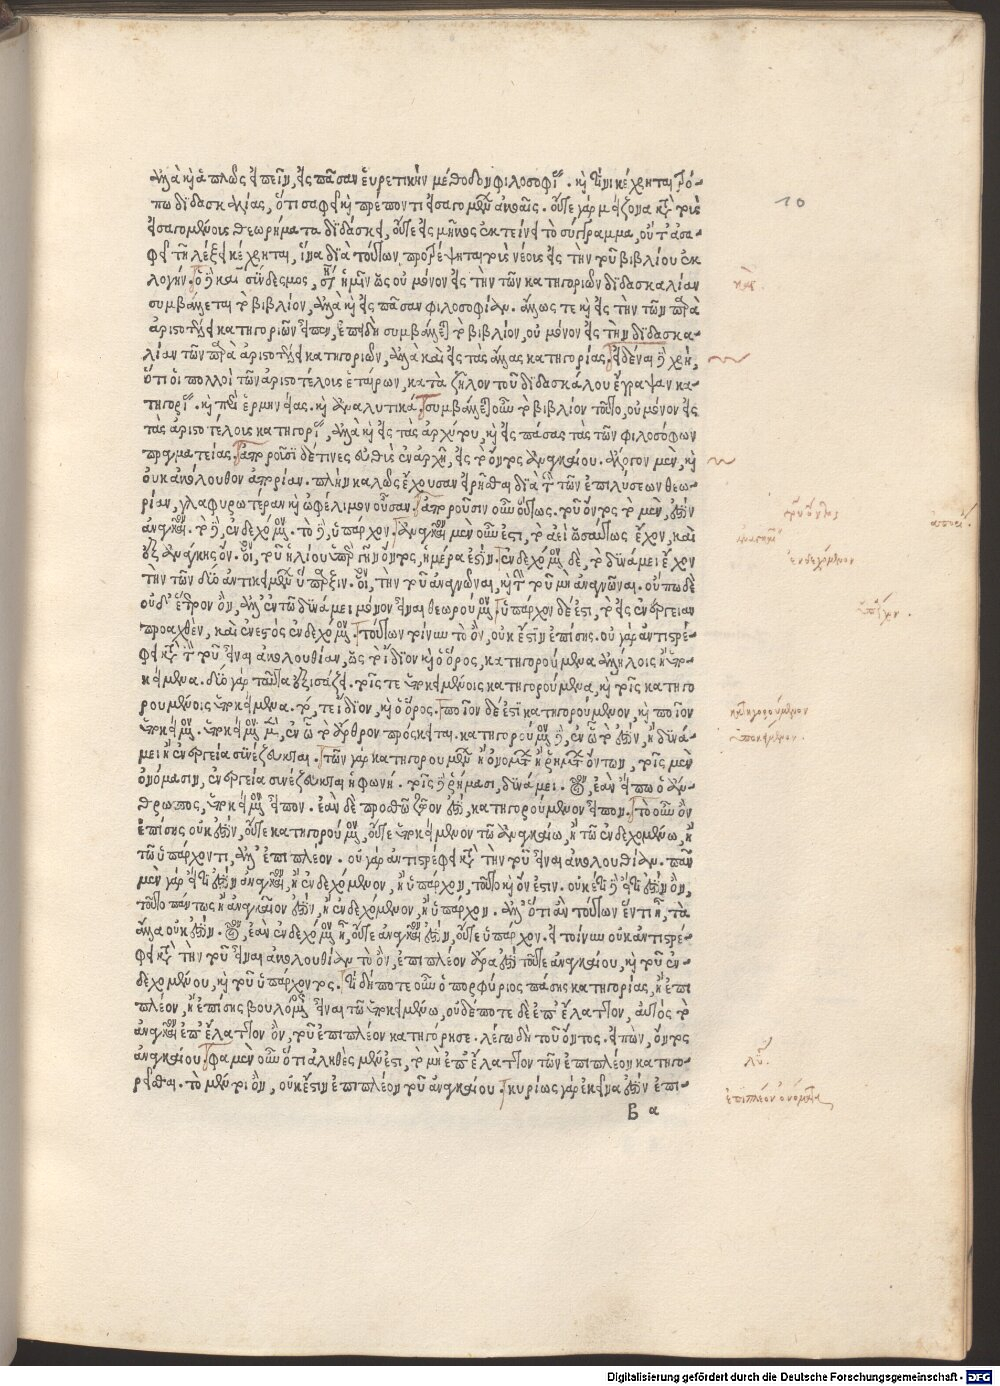 ἀλλὰ καὶ ἁπλῶς εἰπεῖν, εἰς πᾶσαν εὑρετικὴν μέθοδον φιλοσοφίας. καὶ τίνι κέχρηται τρό-
πω διδασκαλίας, ὅτι σαφεῖ καὶ πρέποντι εἰσαγομένων ἀκοαῖς. οὔτε γὰρ μείζονα κατὰ τοὺς
εἰσαγομένοις θεωρήματα διδάσκει, οὔτε εἰς μῆκος ἐκτείνει τὸ σύγγραμμα, οὔτ' ἀσα-
φεῖ τῆ λέξει κέχρηται, ἵνα διὰ τούτων προτρέψηται τοὺς νέους εἰς τὴν τοῦ βιβλίου ἐκ
λογήν. ὁ δὲ καὶ σύνδεσμος, ἔδειξεν ἡμῖν ὡς οὐ μόνον εἰς τὴν τῶν κατηγοριῶν διδασκαλίαν
συμβάλλεται τὸ βιβλίον, ἀλλὰ καὶ εἰς πᾶσαν φιλοσοφίαν. ἄλλως τε καὶ εἰς τὴν τῶν παρὰ
ἀριστοτέλει κατηγοριῶν εἶπεν, ἐπειδὴ συμβάλλεται τὸ βιβλίον, οὐ μόνον εἰς τὴν διδασκα-
λίαν τῶν παρὰ ἀριστοτέλει κατηγοριῶν, ἀλλὰ καὶ εἰς τὰς ἄλλας κατηγορίας. εἰδέναι δὲ χρὴ,
ὅτι οἱ πολλοὶ τῶν ἀριστοτέλους ἑταίρων, κατὰ ζῆλον τοῦ διδασκάλου ἔγραψαν κα-
τηγορίας. καὶ περὶ ἑρμηνείας. καὶ ἀναλυτικά. συμβάλλεται οὖν τὸ βιβλίον τοῦτο, οὐ μόνον εἰς
τὰς ἀριστοτέλους κατηγορίας, ἀλλὰ καὶ εἰς τὰς ἀρχύτου, καὶ εἰς πάσας τὰς τῶν φιλοσόφων
πραγματείας. ἀποροῦσι δέ τινες εὐθὺς ἐν ἀρχῆ, εἰς τὸ ὄντος ἀναγκαίου. ἄλογον μὲν, καὶ
οὐκ ἀκόλουθον ἀπορίαν. πλὴν καλῶς ἔχουσαν εἰρῆσθαι διὰ τὴν τῶν ἐπιλύσεων θεω-
ρίαν, γλαφυρωτέραν καὶ ὠφέλιμον οὖσαν. ἀποροῦσιν οὖν οὕτως. τοῦ ὄντος τὸ μὲν, ἐστὶν
ἀναγκαῖον. τὸ δὲ, ἐνδεχόμενον. τὸ δὲ, ὑπάρχον. ἀναγκαῖον μὲν οὖν ἐστι, τὸ ἀεὶ ὡσαύτως ἔχον, καὶ
ἐξ ἀνάγκης ὄν. οἷον, τοῦ ἡλίου ὑπὲρ γῆν ὄντος, ἡμέρα ἐστίν. ἐνδεχόμενον δὲ, τὸ δυνάμει ἔχον
τὴν τῶν δύο ἀντικειμένων ὕπαρξιν. οἷον, τὴν τοῦ ἀναγνῶναι, καὶ τὴν τοῦ μὴ ἀναγνῶναι. οὔπω δὲ
οὐδ' ἕτερον ὂν, ἀλλ' ἐν τῶ δυνάμει μόνον εἶναι θεωρούμενον. ὑπάρχον δέ ἐστι, τὸ εἰς ἐνέργειαν
προαχθὲν, καὶ ἐνεστὸς ἐνδεχόμενον. τούτων τοίνυν τὸ ὂν, οὐκ ἔστιν ἐπίσης. οὐ γὰρ ἀντιστρέ-
φει κατὰ τὴν τοῦ εἶναι ἀκολουθίαν, ὡς τὸ ἴδιον καὶ ὁ ὅρος, κατηγορούμενα ἀλλήλοις καὶ ὑπο-
κείμενα. διὸ γὰρ ταῦτα ἐξισάζει. τοῖς τε ὑποκειμένοις κατηγορούμενα, καὶ τοῖς κατηγο
ρουμένοις ὑποκείμενα. τό, τε ἴδιον, καὶ ὁ ὅρος. ποῖον δέ ἐστι κατηγορούμενον, καὶ ποῖον
ὑποκείμενον. ὑποκείμενον μὲν, ἐν ὧ τὸ ἄρθρον πρόσκειται. κατηγορούμενον δὲ, ἐν ὧ τὸ ἐστὶν, ἢ δυνά-
μει ἢ ἐνεργεία συνέζευκται. τῶν γὰρ κατηγορουμένων ἢ ὀνομάτων ἢ ῥημάτων ὄντων, τοῖς μὲν
ὀνόμασιν, ἐνεργεία συνέζευκται ἡ φωνή. τοῖς δὲ ῥήμασι, δυνάμει. οἷον, ἐὰν εἴπω ὁ ἄν-
θρωπος, ὑποκείμενον εἶπον. ἐὰν δὲ προσθῶ ζῶον ἐστὶ, κατηγορούμενον εἶπον. τὸ οὖν ὂν
ἐπίσης οὐκ ἐστὶν, οὔτε κατηγορούμενον, οὔτε ὑποκείμενον τῶ ἀναγκαίω, ἢ τῶ ἐνδεχομένω, ἢ
τῶ ὑπάρχοντι, ἀλλ' ἐπιπλέον. οὐ γὰρ ἀντιστρέφει κατὰ τὴν τοῦ εἶναι ἀκολουθίαν. πᾶν
μὲν γὰρ εἴ τί ἐστιν ἀναγκαῖον, ἢ ἐνδεχόμενον, ἢ ὑπάρχον, τοῦτο καὶ ὄν ἐστιν. οὐκέτι δὲ εἴ τί ἐστιν ὂν,
τοῦτο πάντως ἢ ἀναγκαῖον ἐστὶν, ἢ ἐνδεχόμενον, ἢ ὑπάρχον. ἀλλ' ὅτι ἂν τούτων ἕν τι ἦ, τὰ
ἄλλα οὐκ ἐστίν. οἷον, ἐὰν ἐνδεχόμενον ἦ, οὔτε ἀναγκαῖον ἐστὶν, οὔτε ὑπάρχον. εἰ τοίνυν οὐκ ἀντιστρέ-
φει κατὰ τὴν τοῦ εἶναι ἀκολουθίαν τὸ ὂν, ἐπιπλέον ἄρα ἐστὶ τοῦτε ἀναγκαίου, καὶ τοῦ ἐν-
δεχομένου, καὶ τοῦ ὑπάρχοντος. τί δήποτε οὖν ὁ πορφύριος πάσης κατηγορίας, ἢ ἐπι
πλέον, ἢ ἐπίσης βουλομένης εἶναι τῶ ὑποκειμένω, οὐδέποτε δὲ ἐπ' ἔλαττον, αὐτὸς τὸ
ἀναγκαῖον ἐπ' ἔλαττον ὂν, τοῦ ἐπιπλέον κατηγόρησε. λέγω δὴ τοῦ ὄντος. εἰπὼν, ὄντος
ἀναγκαίου. φαμὲν οὖν ὅτι ἀληθὲς μέν ἐστι, τὸ μὴ ἐπ' ἔλαττον τῶν ἐπιπλέον κατηγο-
ρεῖσθαι. τὸ μέντοι ὂν, οὐκ ἔστιν ἐπιπλέον τοῦ ἀναγκαίου. κυρίως γὰρ ἐκεῖνα ἐστὶν ἐπι-
Β α
10
ἐνδεχόμενον
κατηγορούμενον
ὑποκείμενον.
ἐπιπλέον ὀνόματα
Digitalisierung gefördert durch die Deutsche Forschungsgemeinschaft - DFG